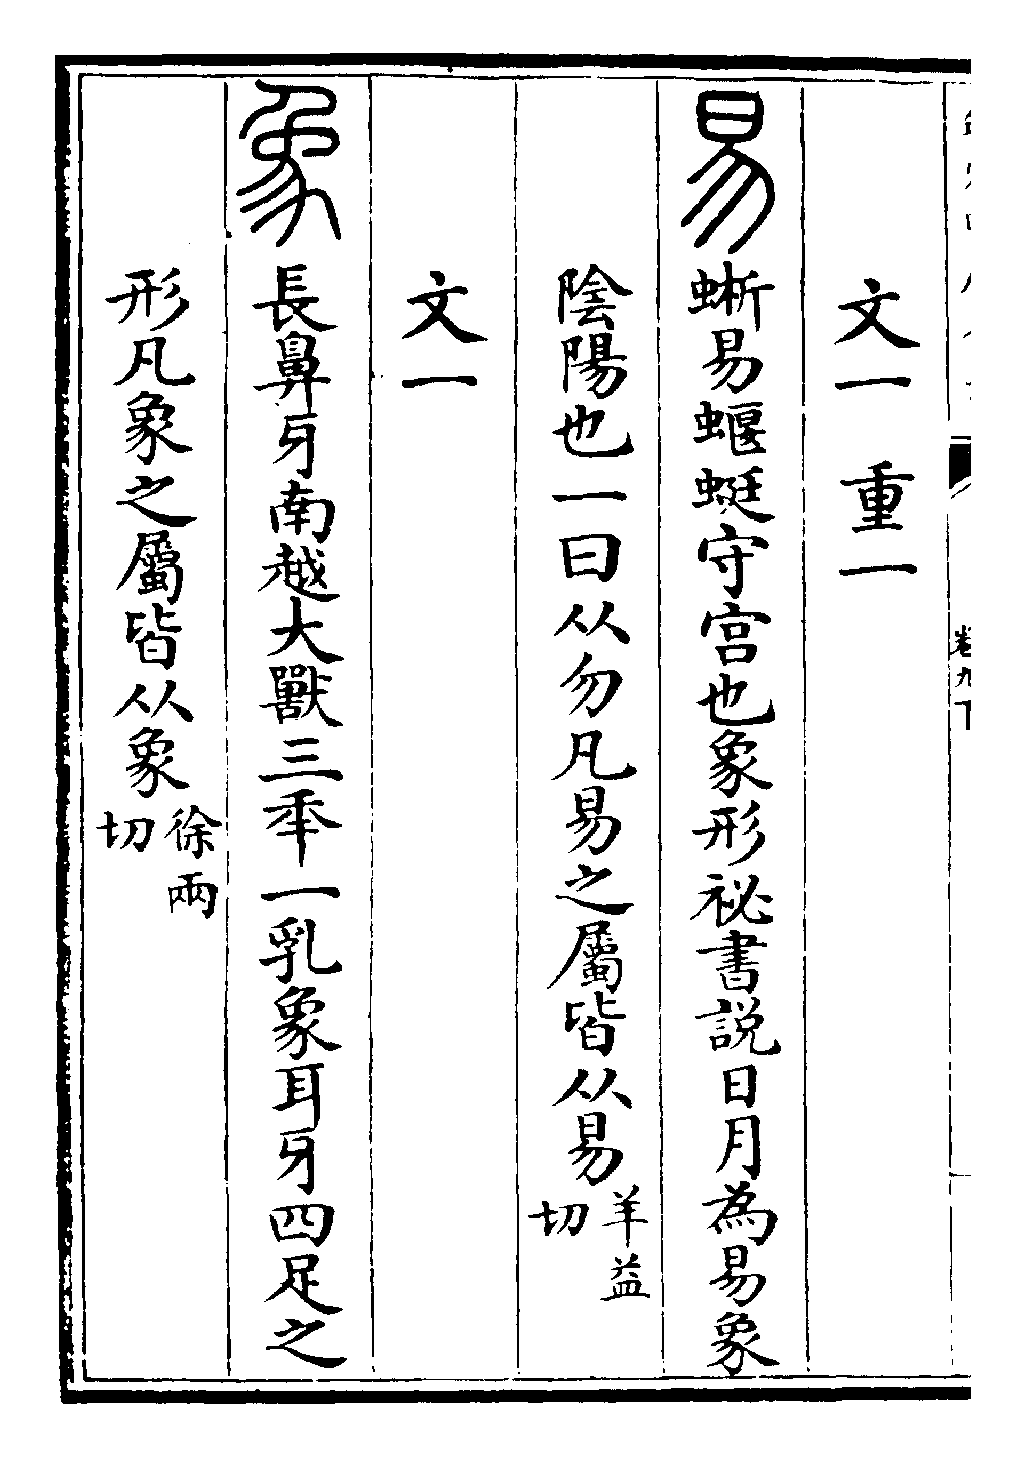 卷九下
文一 重一
易 蜥易蝘蜓守宫也象形祕書説日月為易象
陰陽也一曰从勿凡易之屬皆从易 羊益切
文一
象 長鼻牙南越大獸三秊一乳象耳牙四足之
形凡象之屬皆从象 徐兩切